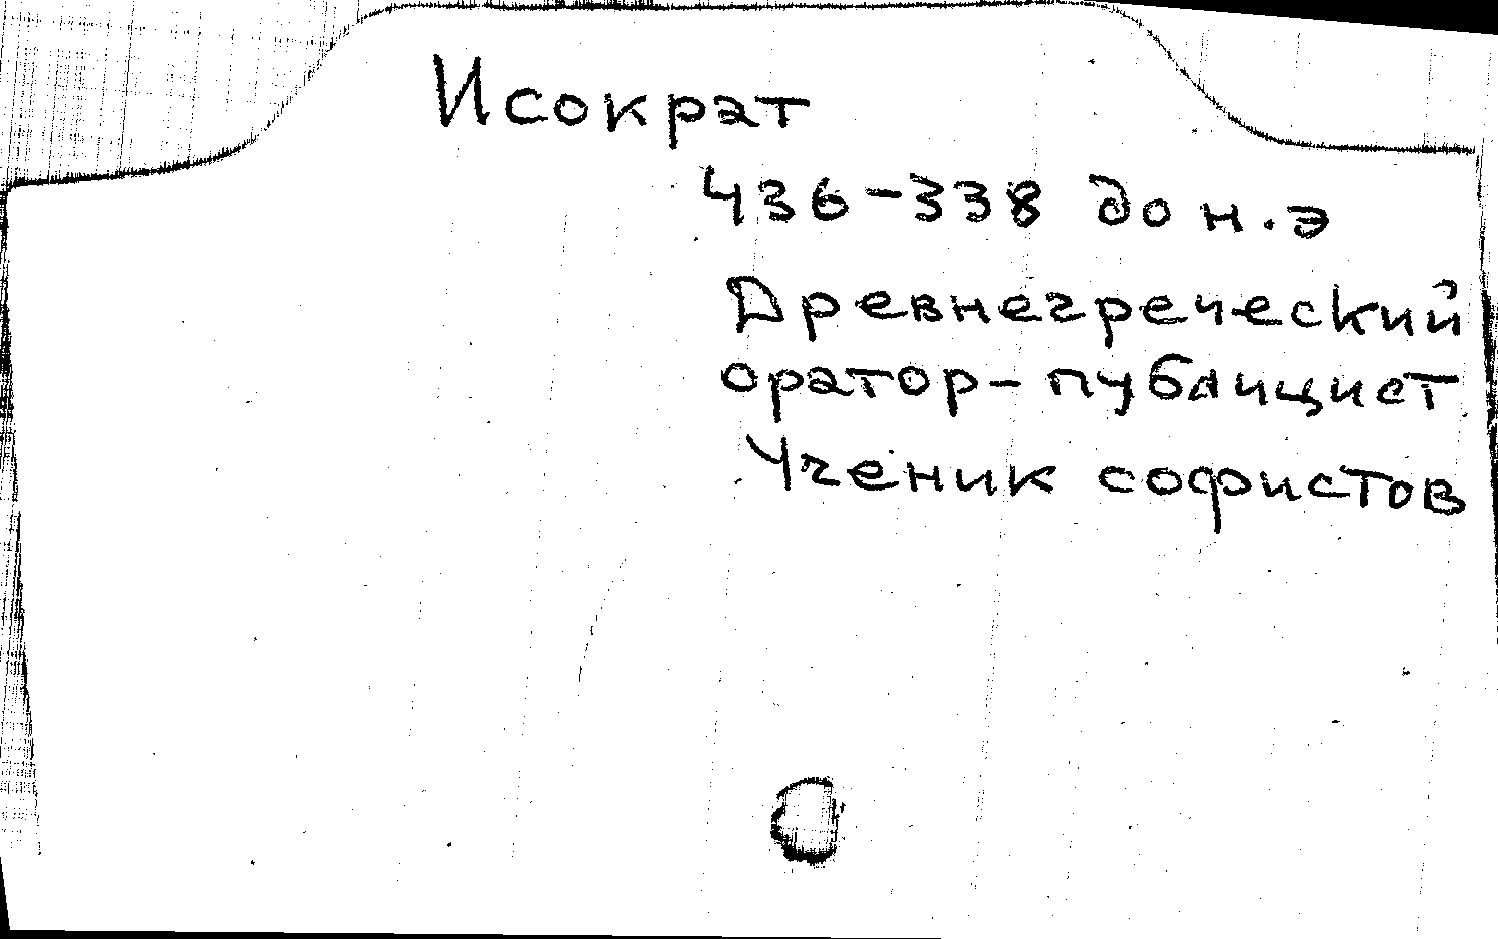 Исократ
436-338 до н.э
Древнегреческий
оратор-публицист
Ученик софистов